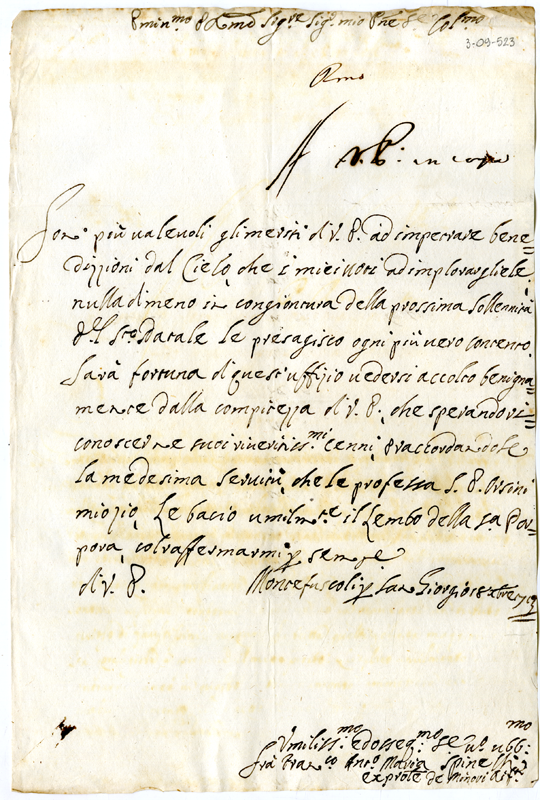 Emin.mo e R.mo Sig.re Sig.r mio P.ne e Col.mo
3-09-523
Son' più valevoli gli meriti di V. E. ad impetrare bene=
dizzioni dal Cielo, che i miei voti ad implorargliele;
nulla dimeno in congiontura della prossima sollennità
del S.to Natale le presagisco ogni più vero contento.
Sarà fortuna di quest'uffizio vedersi accolto benigna=
mente dalla compitezza di V. E., che sperandovi
conoscerne suoi riveritiss.mi cenni, e raccordandole
la medesima servitù, che le professa S. E. Orsini
mio zio, Le bacio umilm.te il Lembo della Sa. Por=
pora, col raffermarmi p. sempre
di V. E. Montefuscoli p. San Giorgio
Umiliss.mo ed osseq.mo Se. v.o obb.mo
frà Fran.co Ant.o Maria Spinelli
exprov.le de Minori